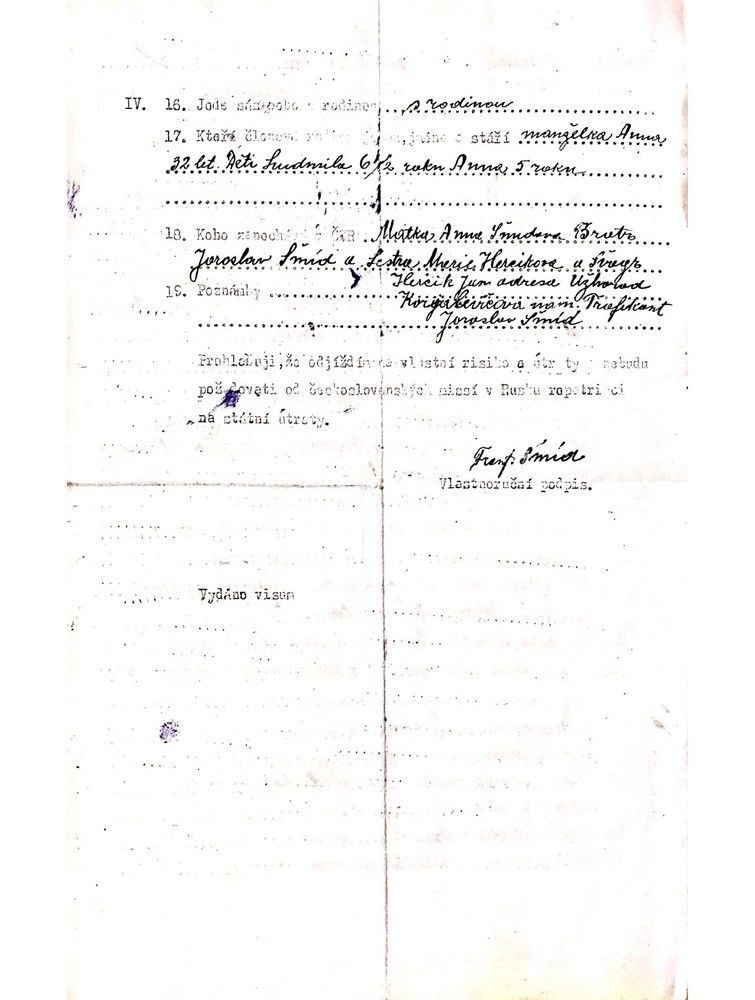 IV. 16. Jede sám nebo s rodinou s rodinou
17. Kteří členové rodiny jedou, jméno a stáří manželka Anna
32 let. Děti Ludmila 6 1/2 roku Anna 5 roku
18. Koho zanechává v ČSR Matka Anna Šmídova Bratr
Jaroslav Šmíd a Sestra Marie Herčikova a Švagr
Herčik Jan adresa Užhorod
19. Poznámky
nám. Trafikant
Jaroslav Šmíd
Prohlašuji, že odjíždím na vlastní risiko a útraty a nebudu
požadovati od československých missí v Rusku repatriaci
na státní útraty.
Frant. Šmíd
Vlastnoruční podpis.
Vydáno visum